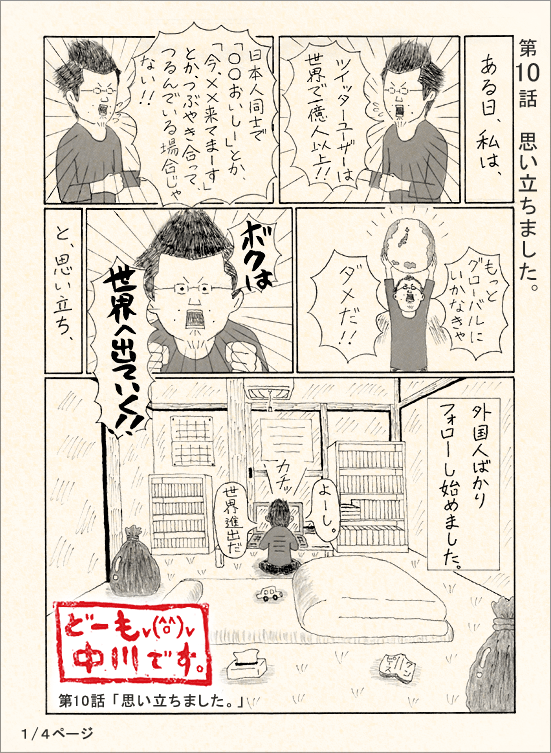 第10話 思い立ちました。
ある日、私は、
ツイッターユーザーは
世界で一億人以上!!
日本人同士で
「〇〇おいしー」とか、
「今、××来てまーす」
とか、つぶやき合って、
つるんでいる場合じゃ
ない!!
もっと
グローバルに
いかなきゃ
ダメだ!!
ボクは
世界へ出ていく!!
と、思い立ち、
外国人ばかり
フォローし始めました。
よーし。
カチッ
世界進出だ
どーもv(^o^)v
中川です。
第10話「思い立ちました。」
1/4ページ